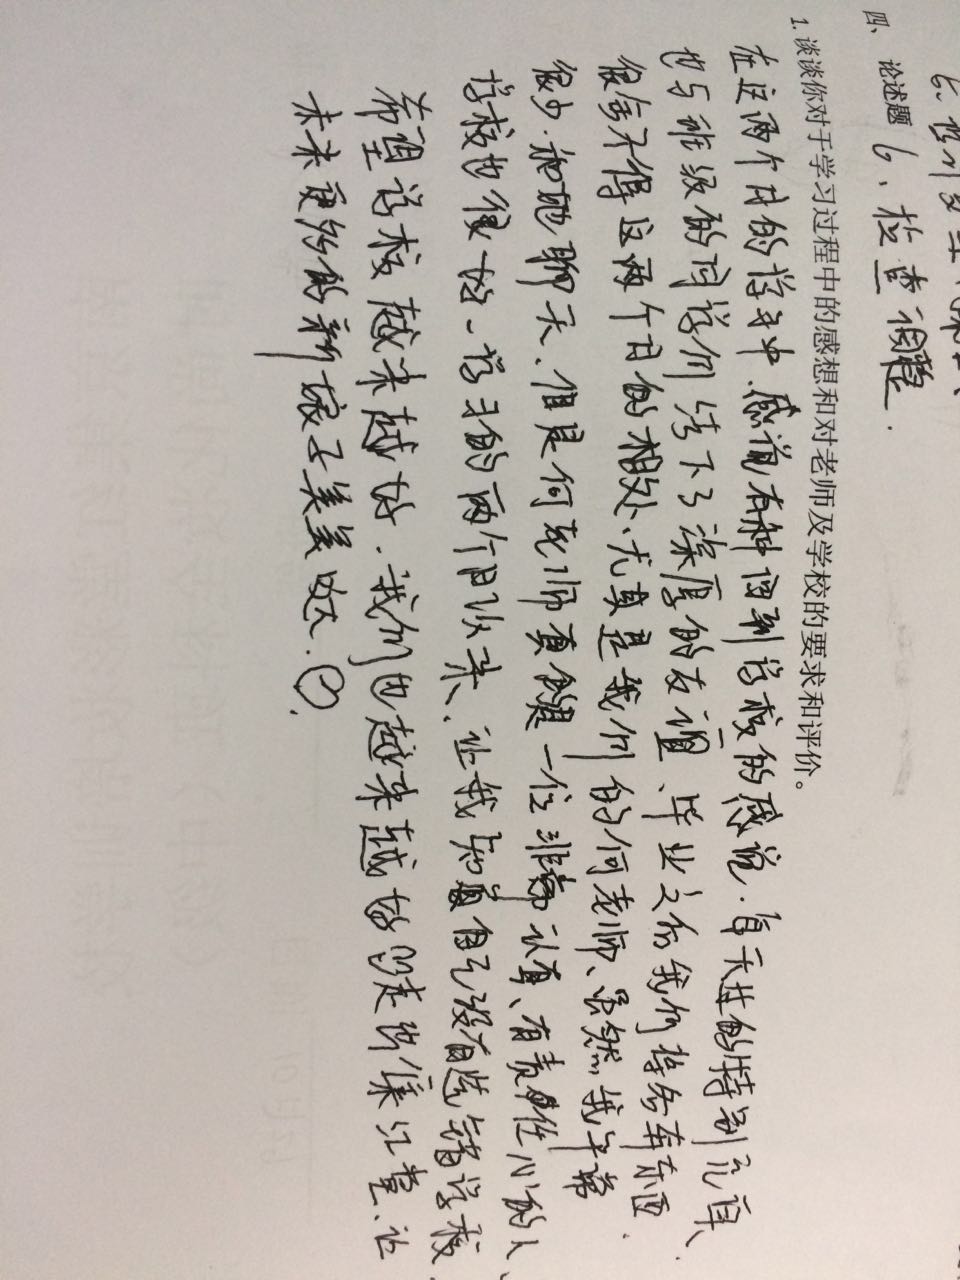 6、检查调整.
四、论述题
1.谈谈你对于学习过程中的感想和对老师及学校的要求和评价。
在这两个月的学习中.感觉有种回到学校的感觉.每天过的特别充实、
也与班级的同学们结下了深厚的友谊、毕业之后我们将各奔东西.
很舍不得这两个月的相处、尤其是我们的何老师、虽然我平常
很少.和她聊天.但是何老师真的是一位非常认真、有责任心的人、
学校也很好.学习的两个月以来、让我知道自己没有选错学校.
希望学校越来越好.我们也越来越好的走出集江堂.让
未来更多的新娘子美美哒.